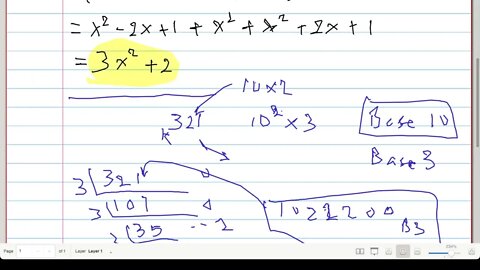 = x² - 2x + 1 + x² + x² + 2x + 1
= 3x² + 2
10 x 2
321
10² x 3
Base 10
Base 3
3 321
3 107 0
35 2
1022200
B3
Page 1 of 1 Layer: Layer 1